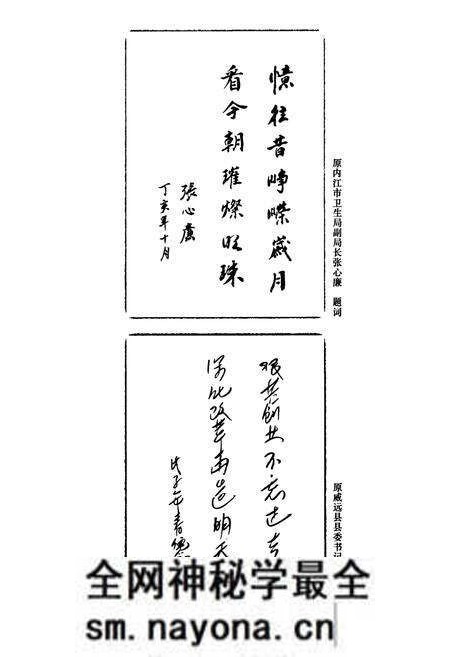 憶往昔崢嶸歲月
看今朝璀燦明珠
張心廉
丁亥年十月
原内江市卫生局副局长张心廉 题词
艰苦创业不忘过去
深化改革再造明天
原威远县县委书记
全网神秘学最全
sm.nayona.cn